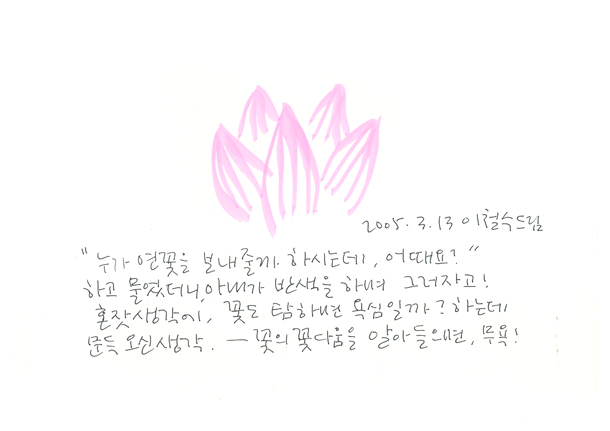 2005. 3. 13 이철수드림
"누가 연꽃을 보내줄까 하시는데, 어때요?"
하고 물었더니, 아내가 반색을 하며 그러자고!
혼잣생각에, 꽃도 탐하면 욕심일까? 하는데
문득 오신 생각. — 꽃의 꽃다움을 알아들으면, 무욕!